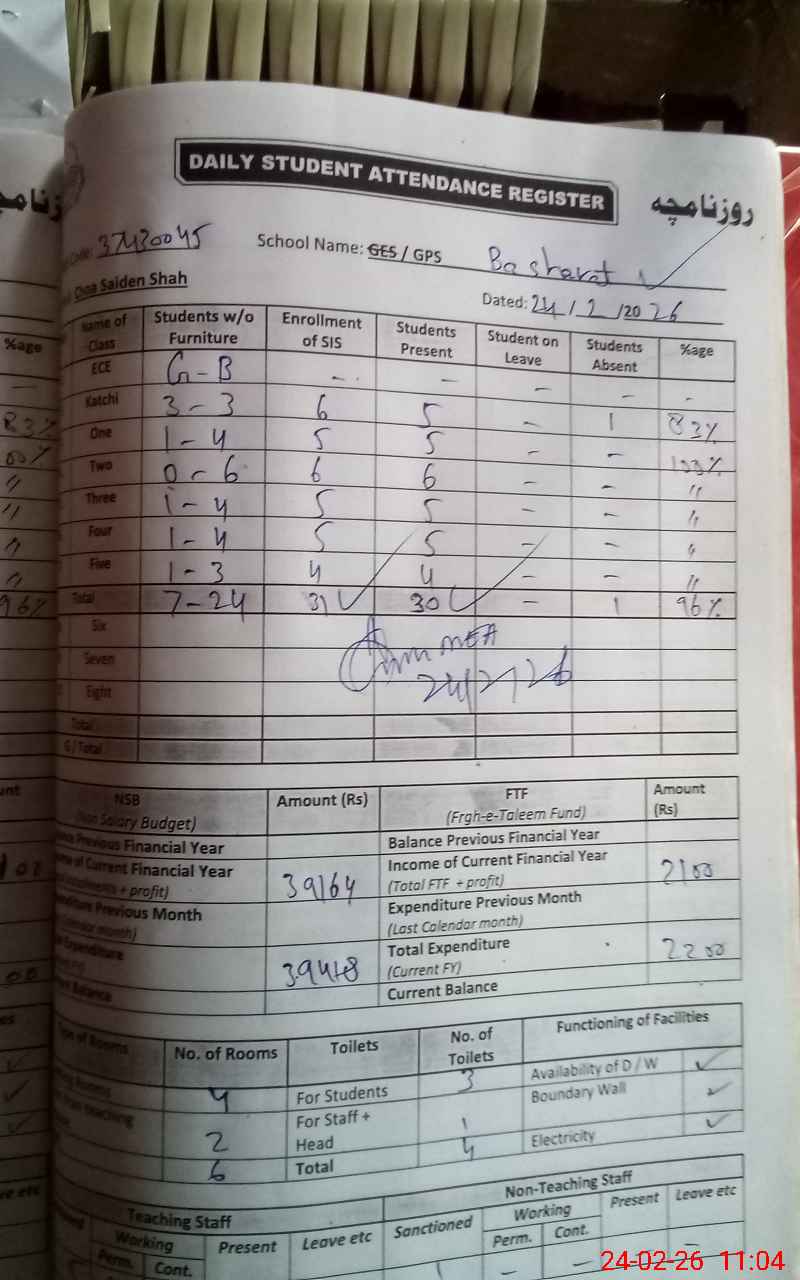 DAILY STUDENT ATTENDANCE REGISTER روزنامچہ
37430045 School Name: GES / GPS Basharat
Choa Saiden Shah Dated: 24/2/2026
%age Name of Class Students w/o Furniture Enrollment of SIS Students Present Student on Leave Students Absent %age
ECE G-B - - - - -
83% Katchi 3-3 6 5 - 1 83%
One 1-4 5 5 - - 100%
Two 0-6 6 6 - - "
Three 1-4 5 5 - - "
Four 1-4 5 5 - - "
Five 1-3 4 4 - - "
96% Total 7-24 31 30 - 1 96%
Six
Seven
Eight
24/2/26
Total
G/Total
NSB (Non Salary Budget) Amount (Rs) FTF (Frgh-e-Taleem Fund) Amount (Rs)
Previous Financial Year Balance Previous Financial Year
of Current Financial Year + profit) 39164 Income of Current Financial Year (Total FTF + profit) 2100
Previous Month month) Expenditure Previous Month (Last Calendar month)
Expenditure Total Expenditure (Current FY) 2200
Balance Current Balance
of Rooms No. of Rooms Toilets No. of Toilets Functioning of Facilities
4 For Students 3 Availability of D / W ✓
Boundary Wall ✓
2 For Staff + Head 1
6 Total 4 Electricity ✓
Teaching Staff Non-Teaching Staff
Working Present Leave etc Sanctioned Working Present Leave etc
Perm. Cont. Perm. Cont.
24-02-26 11:04